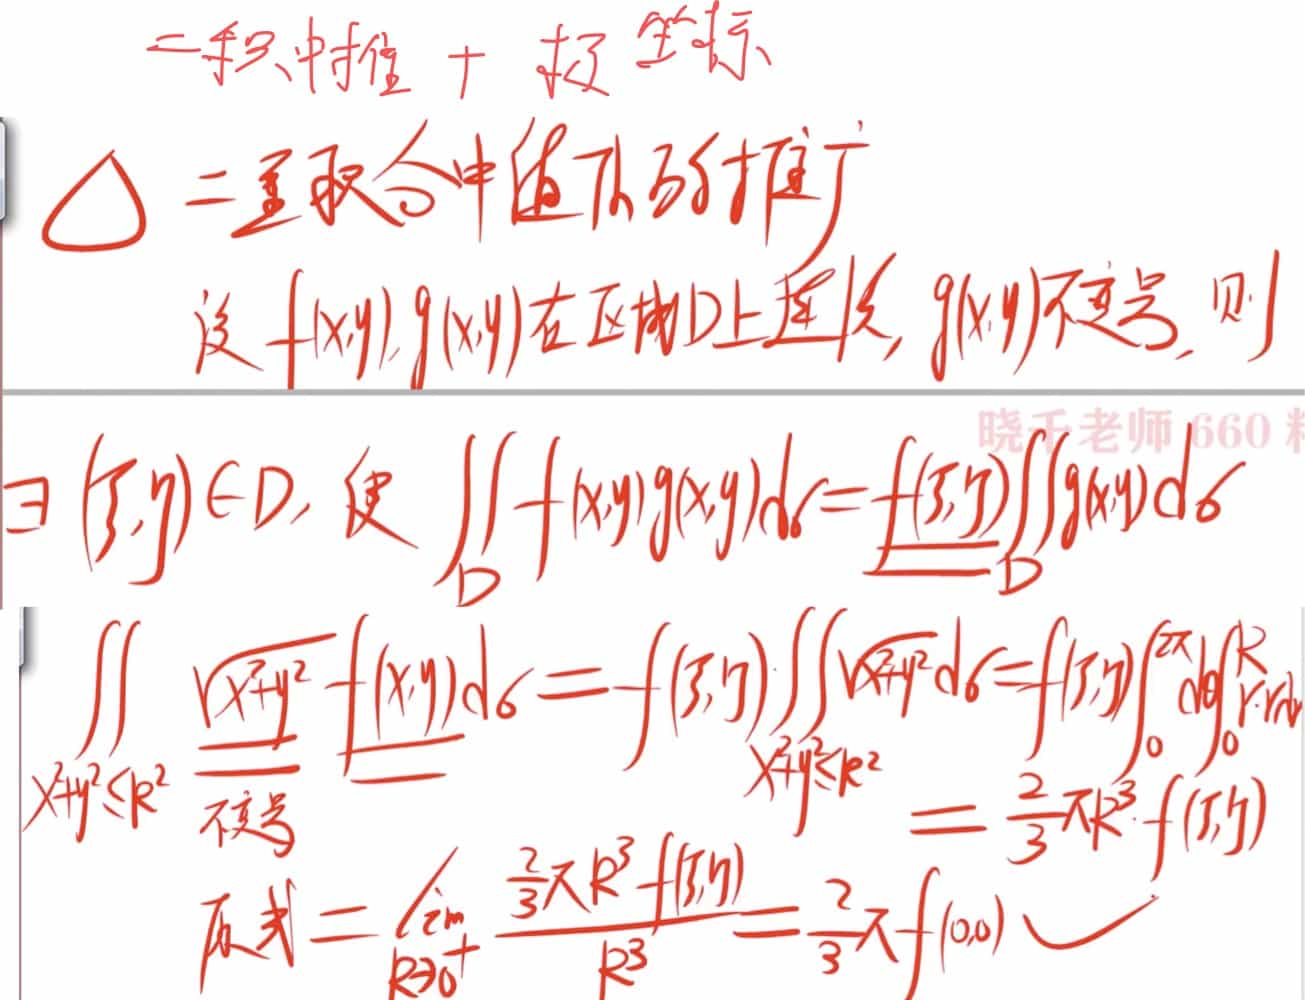 二积中推 + 极坐标
△ 二重积分中值定理的推广
设 f(x,y), g(x,y)在区域D上连续, g(x,y)不变号, 则
晓千老师 660
∃ (ξ,η)∈D, 使 ∬_D f(x,y)g(x,y)dσ = f(ξ,η)∬_D g(x,y)dσ
∬_{x²+y²≤R²} √(x²+y²) f(x,y)dσ = f(ξ,η)·∬_{x²+y²≤R²} √(x²+y²) dσ = f(ξ,η)∫₀^{2π}dθ∫₀^R r·rdr
不变号
= 2/3 πR³·f(ξ,η)
原式 = lim_{R→0⁺} (2/3 πR³ f(ξ,η))/R³ = 2/3 π f(0,0)